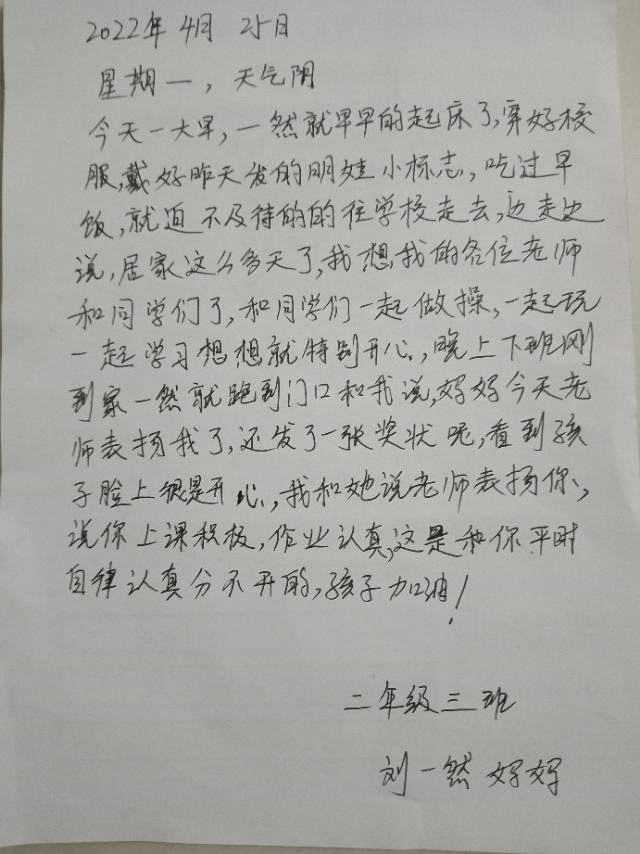 2022年4月25日
星期一,天气阴
今天一大早,一然就早早的起床了,穿好校
服,戴好昨天发的明娃小标志,吃过早
饭,就迫不及待的的往学校走去,边走边
说,居家这么多天了,我想我的各位老师
和同学们了,和同学们一起做操,一起玩
一起学习想想就特别开心,晚上下班刚
到家一然就跑到门口和我说,妈妈今天老
师表扬我了,还发了一张奖状呢,看到孩
子脸上很是开心,我和她说老师表扬你,
说你上课积极,作业认真,这是和你平时
自律认真分不开的,孩子加油!
二年级三班
刘一然妈妈